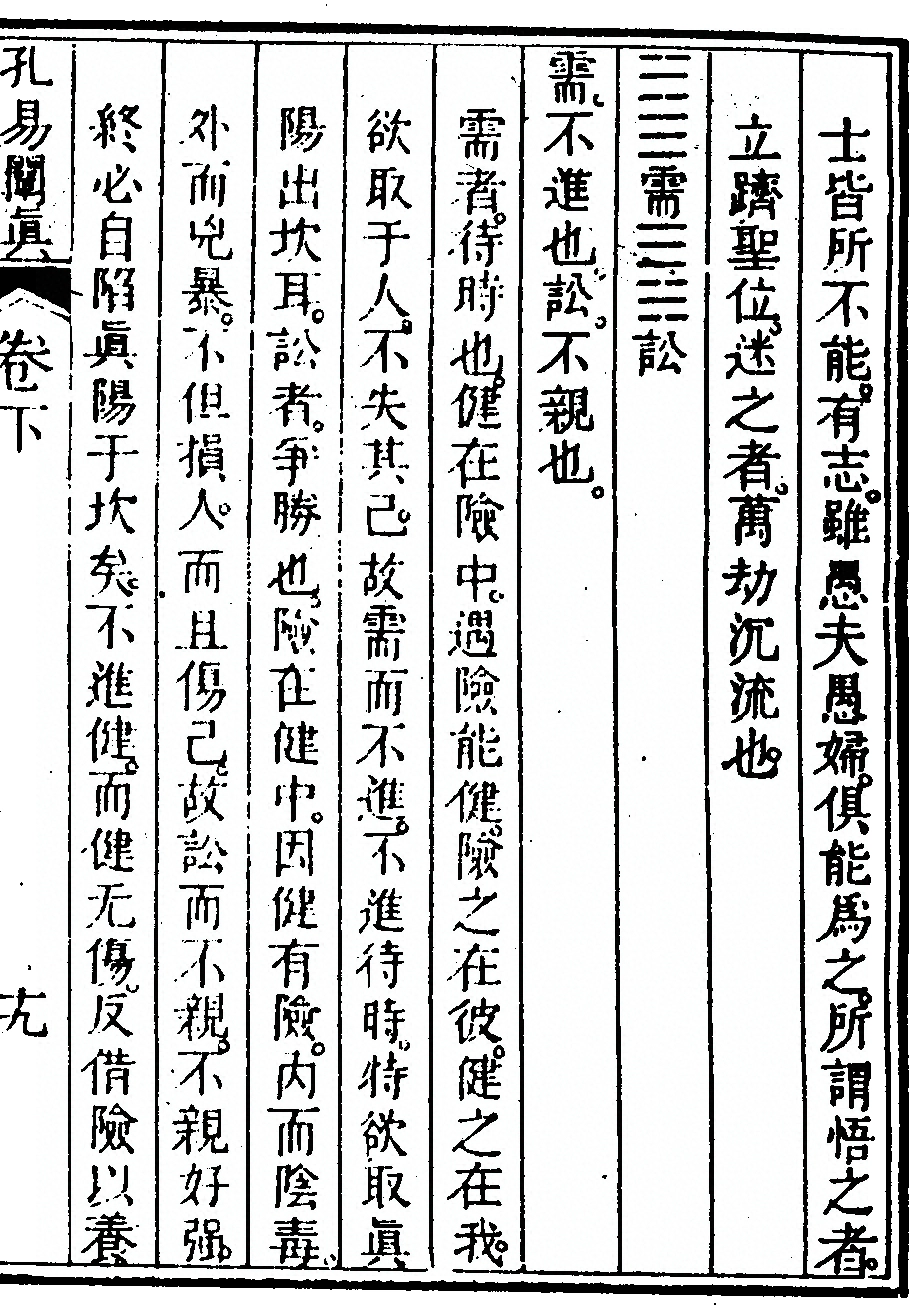 士皆所不能。有志。雖愚夫愚婦。俱能爲之。所謂悟之者。
立躋聖位。迷之者。萬劫沉流也。
䷄需䷅訟
需。不進也。訟。不親也。
需者。待時也。健在險中。遇險能健。險之在彼。健之在我。
欲取于人。不失其己。故需而不進。不進待時。特欲取眞
陽出坎耳。訟者。爭勝也。險在健中。因健有險。内而陰毒。
外而兇暴。不但損人。而且傷己。故訟而不親。不親好强。
終必自陷眞陽于坎矣。不進健。而健无傷。反借險以養
孔易闡眞 卷下 十九